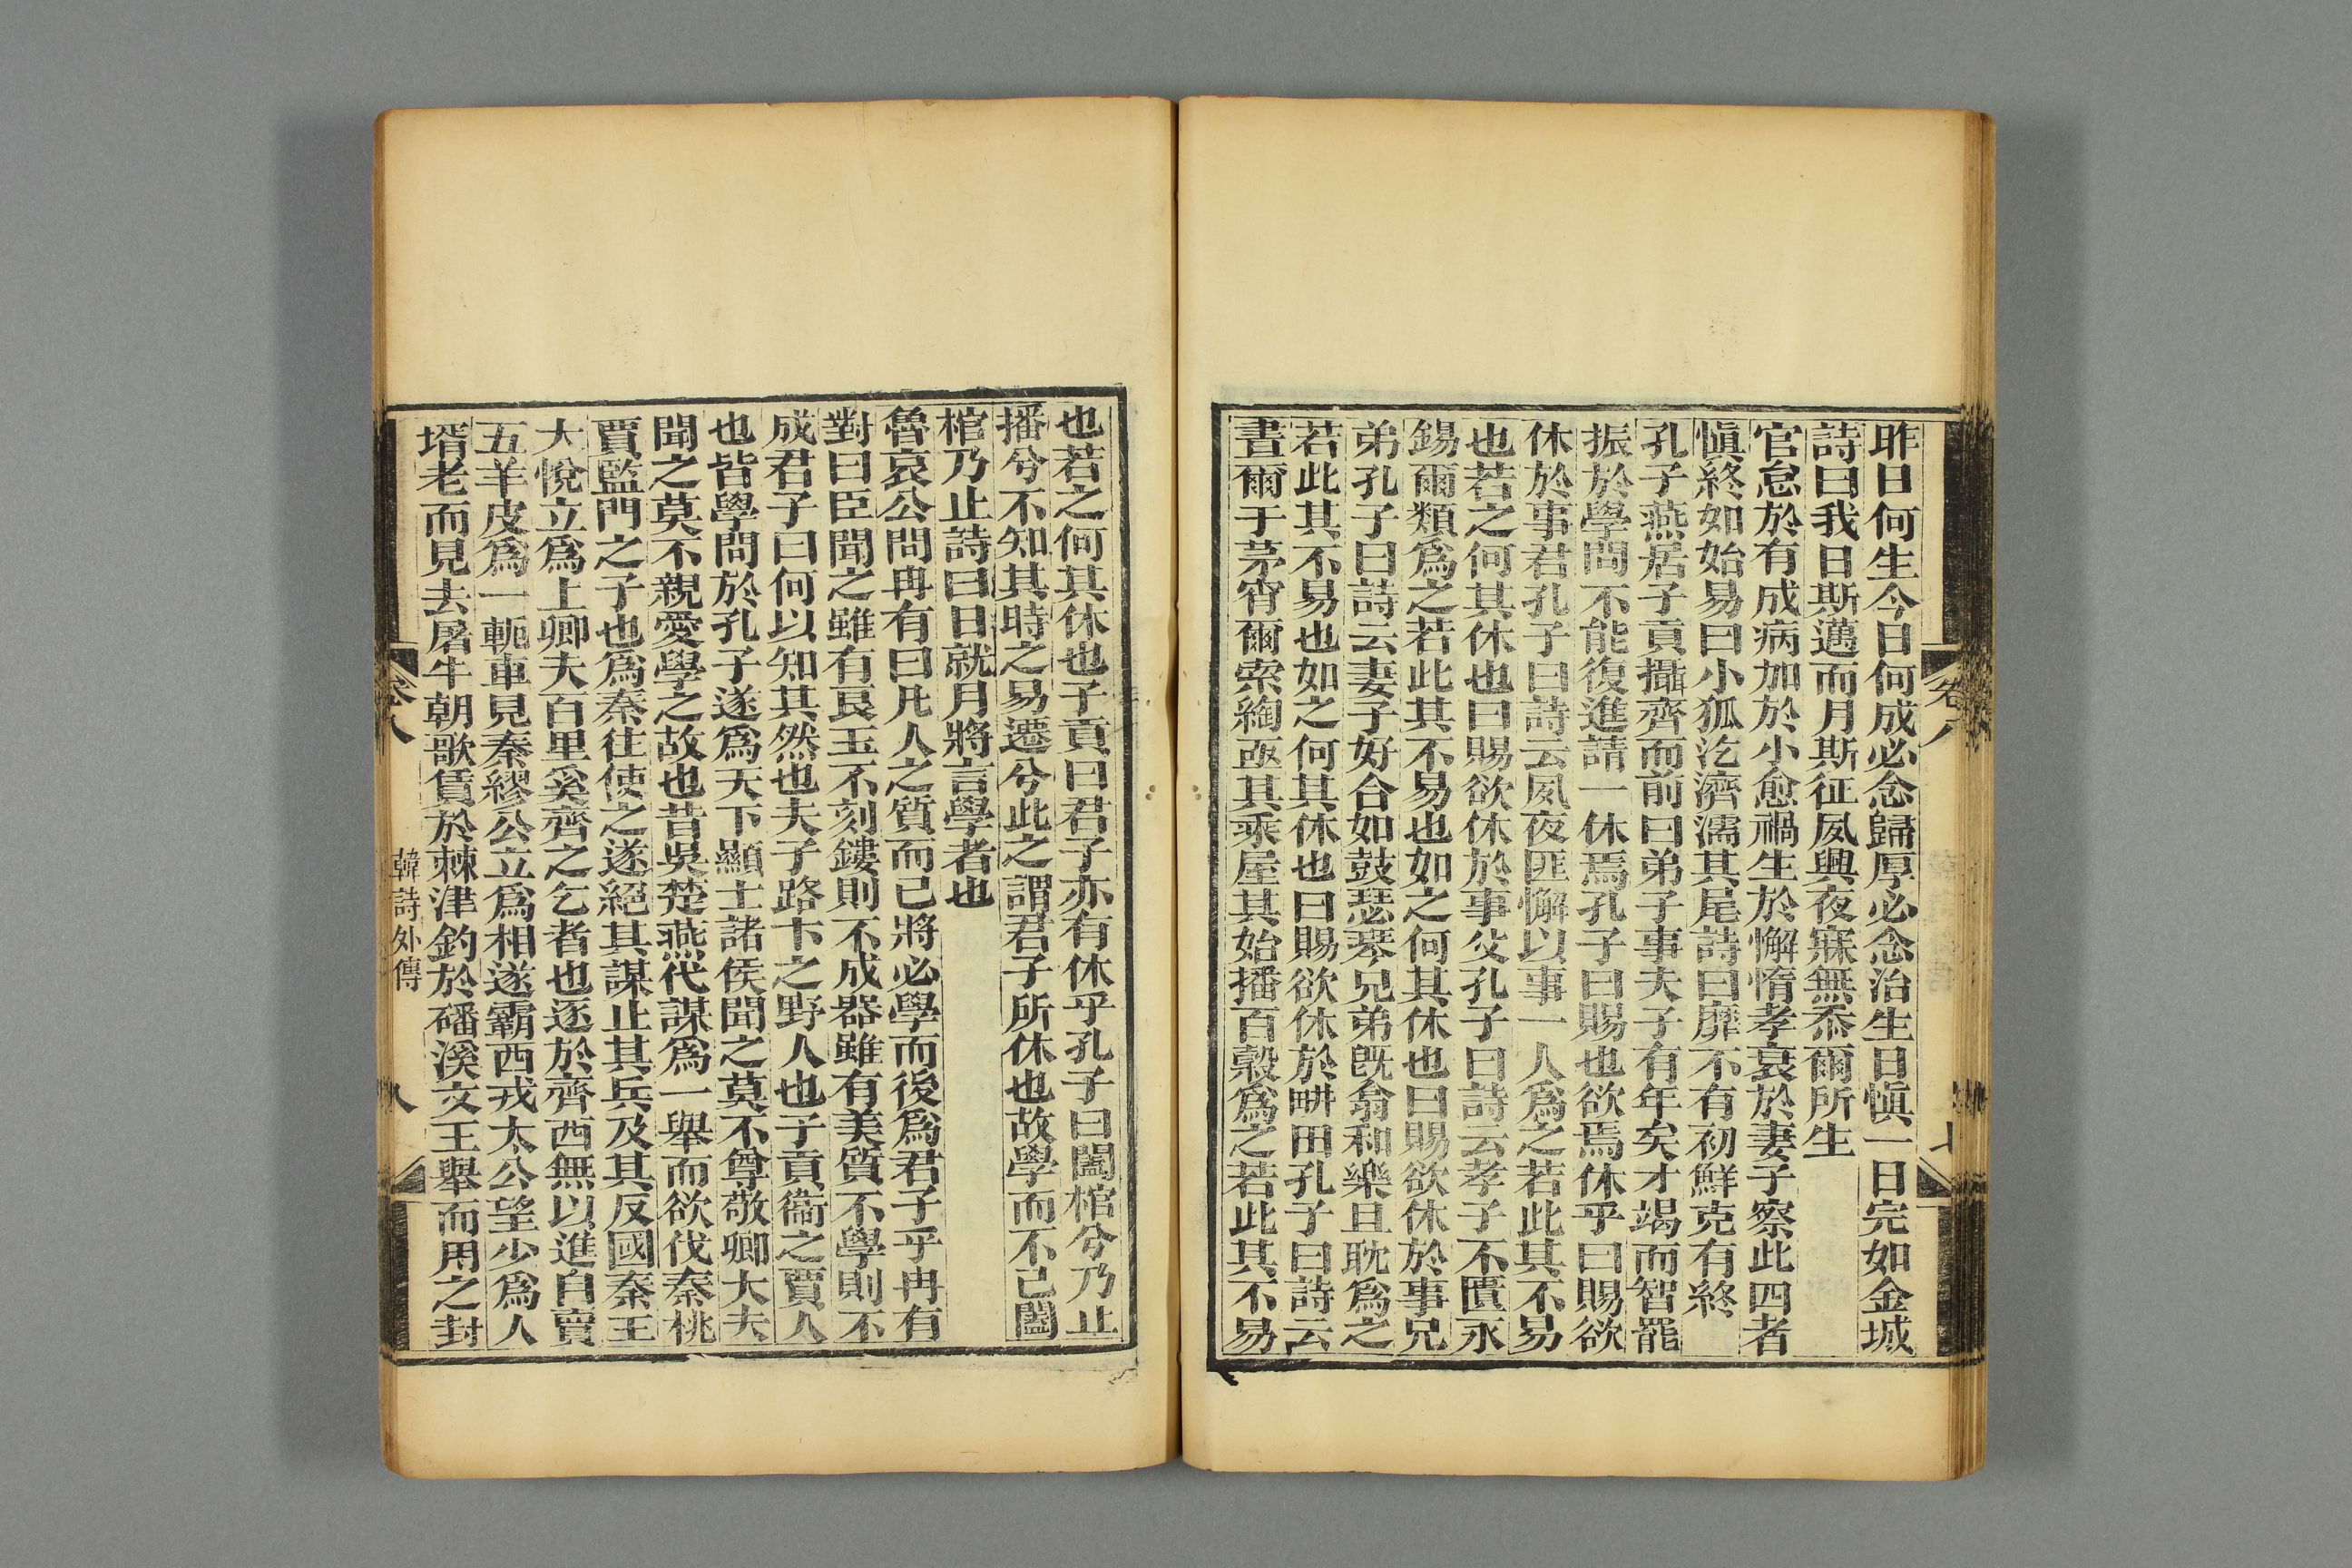 昨日何生今日何成必念歸厚必念治生日慎一日完如金城
詩曰我日斯邁而月斯征夙興夜寐無忝爾所生
官怠於有成病加於小愈禍生於懈惰孝衰於妻子察此四者
慎終如始易曰小狐汔濟濡其尾詩曰靡不有初鮮克有終
孔子燕居子貢攝齊而前曰弟子事夫子有年矣才竭而智罷
振於學問不能復進請一休焉孔子曰賜也欲焉休乎曰賜欲
休於事君孔子曰詩云夙夜匪懈以事一人爲之若此其不易
也若之何其休也曰賜欲休於事父孔子曰詩云孝子不匱永
錫爾類爲之若此其不易也如之何其休也曰賜欲休於事兄
弟孔子曰詩云妻子好合如鼓瑟琴兄弟旣翕和樂且耽爲之
若此其不易也如之何其休也曰賜欲休於畊田孔子曰詩云
晝爾于茅宵爾索綯亟其乘屋其始播百穀爲之若此其不易
卷八
七
也若之何其休也子貢曰君子亦有休乎孔子曰闔棺兮乃止
播兮不知其時之易遷兮此之謂君子所休也故學而不已闔
棺乃止詩曰日就月將言學者也
魯哀公問冉有曰凡人之質而已將必學而後爲君子乎冉有
對曰臣聞之雖有良玉不刻鏤則不成器雖有美質不學則不
成君子曰何以知其然也夫子路卞之野人也子貢衞之賈人
也皆學問於孔子遂爲天下顯士諸侯聞之莫不尊敬卿大夫
聞之莫不親愛學之故也昔吳楚燕代謀爲一舉而欲伐秦桃
賈監門之子也爲秦往使之遂絕其謀止其兵及其反國秦王
大悅立爲上卿夫百里奚齊之乞者也逐於齊西無以進自賣
五羊皮爲一軛車見秦繆公立爲相遂霸西戎太公望少爲人
壻老而見去屠牛朝歌賃於棘津釣於磻溪文王舉而用之封
卷八
韓詩外傳
八